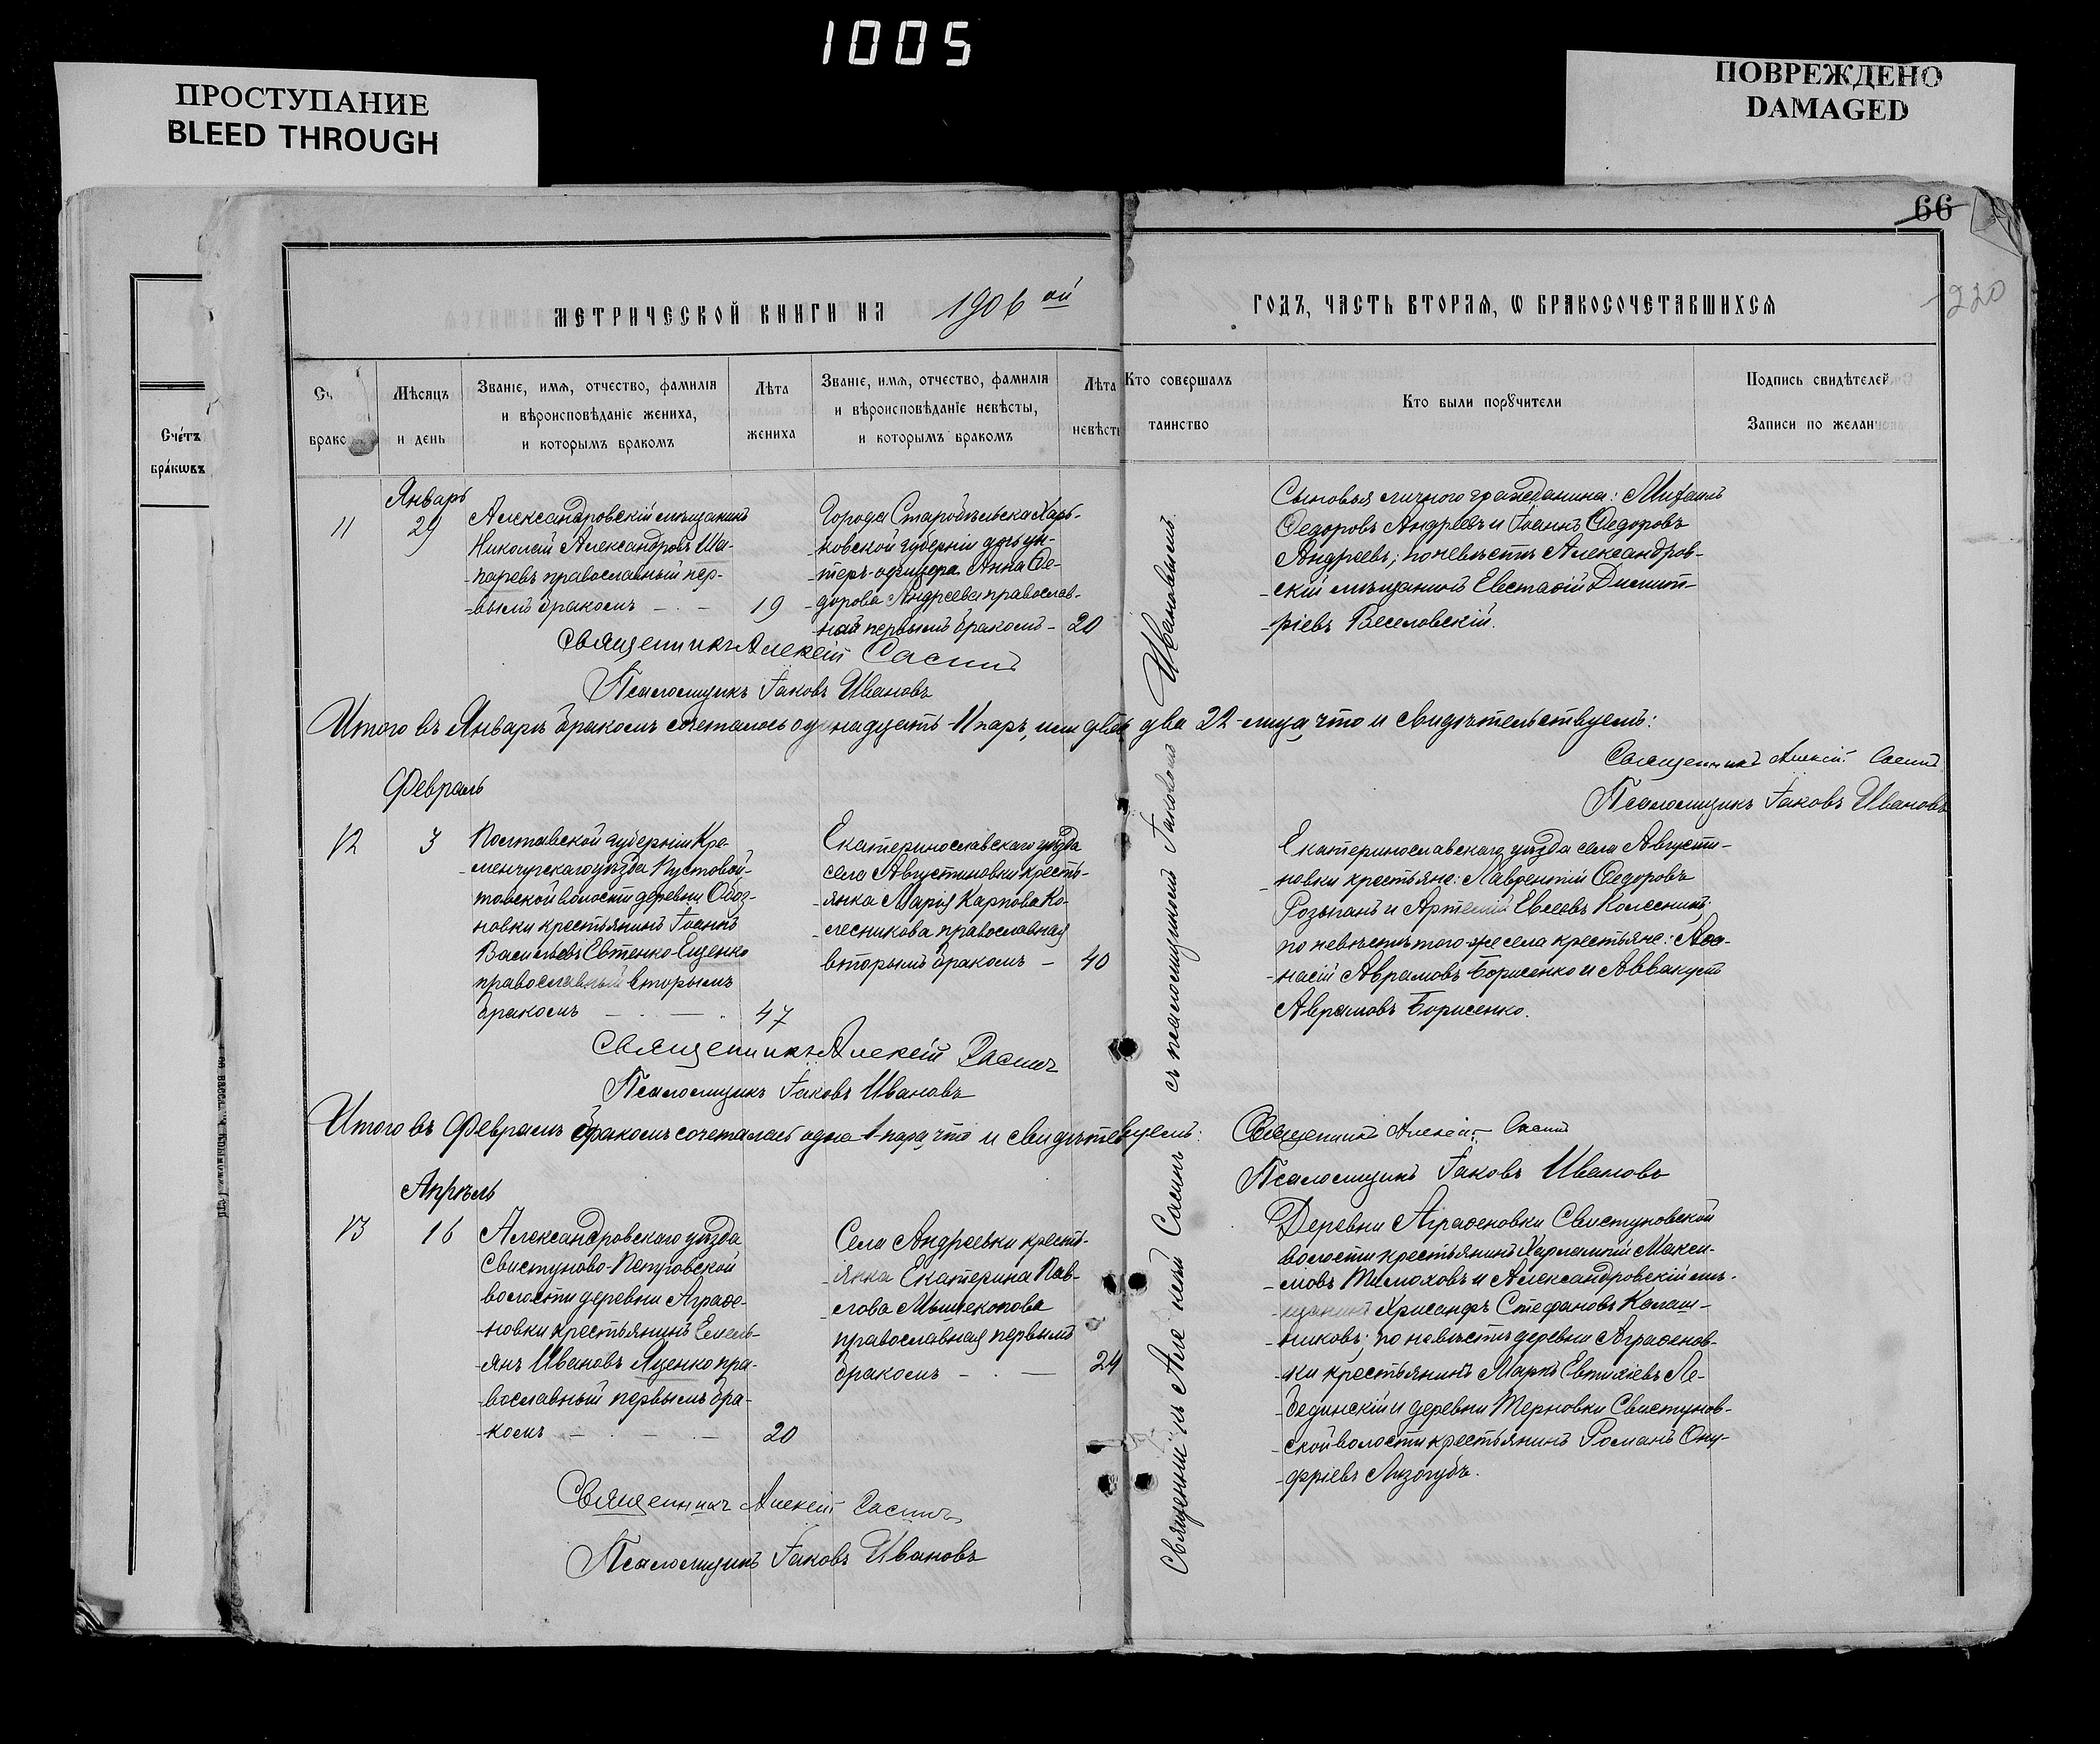 1005
ПРОСТУПАНИЕ
BLEED THROUGH
ПОВРЕЖДЕНО
DAMAGED
66
220
Счетъ
браковъ
МЕТРИЧЕСКОЙ КНИГИ НА 1906 ой
ГОДЪ, ЧАСТЬ ВТОРАЯ, Ѡ БРАКОСОЧЕТАВШИХСЯ
Сч
брако
Мѣсяцъ
и день
Званіе, имя, отчество, фамилія
и вѣроисповѣданіе жениха,
и которымъ бракомъ
Лѣта
жениха
Званіе, имя, отчество, фамилія
и вѣроисповѣданіе невѣсты,
и которымъ бракомъ
Лѣта
невѣсты
Кто совершалъ
таинство
Кто были порꙋчители
Подпись свидѣтелей
Записи по желан
Январь
11
29
Александровскій мѣщанинъ
Николай Александровъ Ша-
-паревъ православный пер-
-вымъ бракомъ
19
Города Старобѣльска Харь-
-ковской губерніи дочь ун-
-теръ-офицера Анна Ѳе-
-дорова Андреева православ-
ная первымъ бракомъ
20
Сыновья личного гражданина: Михаилъ
Ѳедоровъ Андреевъ и Іоаннъ Ѳедоровъ
Андреевъ; по невѣстѣ Александров-
-скій мѣщанинъ Евстафій Димит-
-ріевъ Веселовскій.
Священникъ Алексій Сасинъ
Псаломщикъ Іаковъ Ивановъ
Итого въ Январѣ бракомъ сочеталось одинадцать 11 паръ, или двад два 22 лица, что и свидѣтельствуемъ:
Священникъ Алексій Сасинъ
Псаломщикъ Іаковъ Ивановъ
Февраль
12
3
Полтавской губерніи Кре-
-менчугскаго уѣзда Пустовой-
товской волости деревни Обоз-
новки крестьянинъ Іоаннъ
Васильевъ Евтенко-Ещенко
православный вторымъ
бракомъ
47
Екатеринославскаго уѣзда
села Августиновки кресть-
-янка Марія Карпова Ко-
-лесникова православная
вторымъ бракомъ
40
Екатеринославскаго уѣзда села Августи-
-новки крестьяне: Лаврентій Ѳедоровъ
Розыганъ и Артемій Евсеевъ Колесникъ;
по невѣстѣ того-же села крестьяне: Аѳа-
-насій Аврамовъ Борисенко и Аввакумъ
Аврамовъ Борисенко.
Священникъ Алексій Сасинъ
Псаломщикъ Іаковъ Ивановъ
Итого въ Февралѣ бракомъ сочеталась одна 1 пара, что и свидѣтельствуемъ:
Священникъ Алексій Сасинъ
Псаломщикъ Іаковъ Ивановъ
Апрѣль
13
16
Александровскаго уѣзда
Свистуново-Петровской
волости деревни Аграфе-
-новки крестьянинъ Емель-
-янъ Ивановъ Яценко пра-
-вославный первымъ бра-
-комъ
20
Села Андреевки кресть-
-янка Екатерина Пав-
-лова Мышекопова
православная первымъ
бракомъ
24
Деревни Аграфеновки Свистуновской
волости крестьянинъ Харлампій Макси-
-мовъ Тимоховъ и Александровскій мѣ-
-щанинъ Хрисанфъ Стефановъ Калаш-
-никовъ; по невѣстѣ деревни Аграфенов-
-ки крестьянинъ Маркъ Евтихіевъ Ле-
-бединскій и деревни Терновки Свистунов-
-ской волости крестьянинъ Романъ Ону-
-фріевъ Лизогубъ.
Священникъ Алексій Сасинъ
Псаломщикъ Іаковъ Ивановъ
Священникъ Алексій Сасинъ съ псаломщикомъ Іаковомъ Ивановымъ